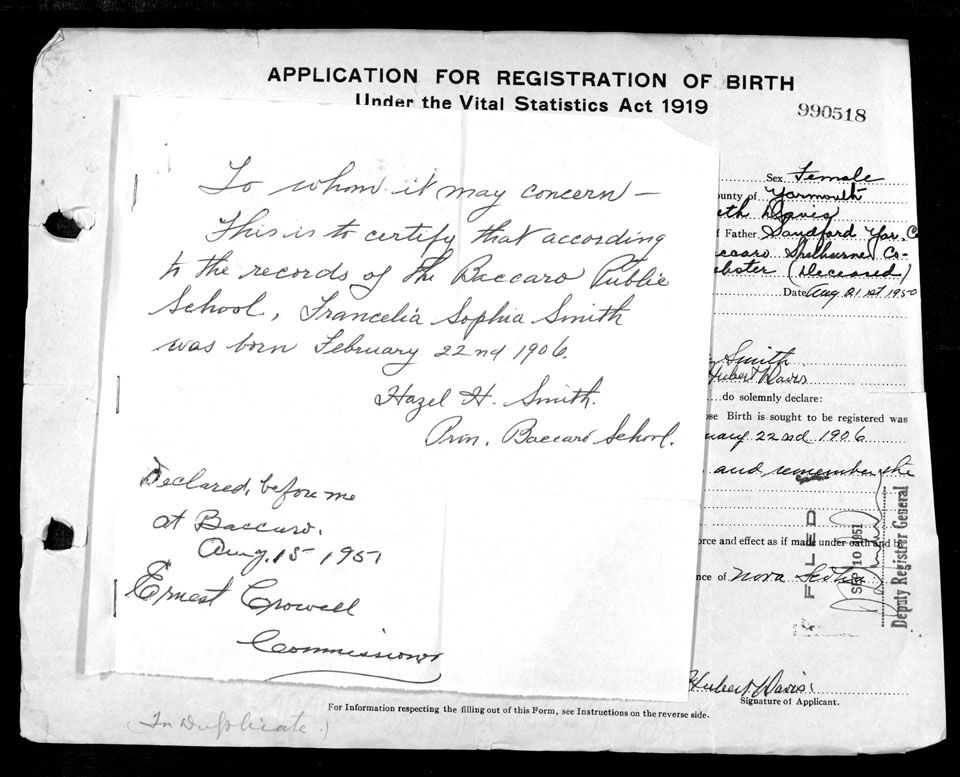 APPLICATION FOR REGISTRATION OF BIRTH
Under the Vital Statistics Act 1919
990518
To whom it may concern —
This is to certify that according
to the records of the Baccaro Public
School, Francelia Sophia Smith
was born February 22nd 1906.
Hazel H. Smith.
Prin. Baccaro School.
Declared, before me
at Baccaro.
Aug. 15 1951
Ernest Crowell
Commissioner
Sex Female
ounty of Yarmouth
eth Davis
f Father Sandford Yar. Co
accaro Shelburne Co-
ebster (Deceased)
Date Aug 21st 1950
Smith
Hubert Davis
do solemnly declare:
ose Birth is sought to be registered was
uary 22nd 1906
and remember she
orce and effect as if made under oath and by
nce of Nova Scotia
FILED
SEP 10 1951
Deputy Registrar General
Hubert Davis.
Signature of Applicant.
For Information respecting the filling out of this Form, see Instructions on the reverse side.
(In Duplicate.)